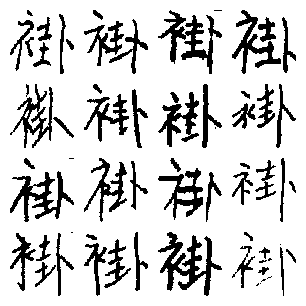 褂褂褂褂
褂褂褂褂
褂褂褂褂
褂褂褂褂